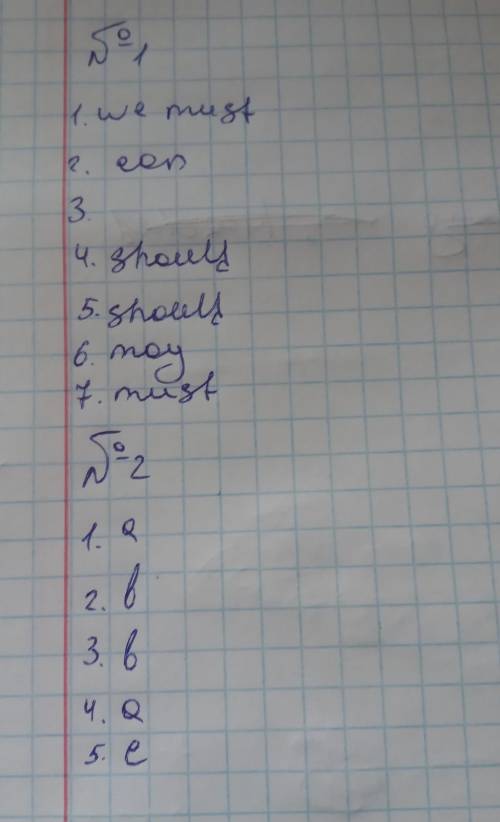 №1
1. we must
2. can
3.
4. should
5. should
6. may
7. must
№2
1. a
2. b
3. b
4. a
5. c